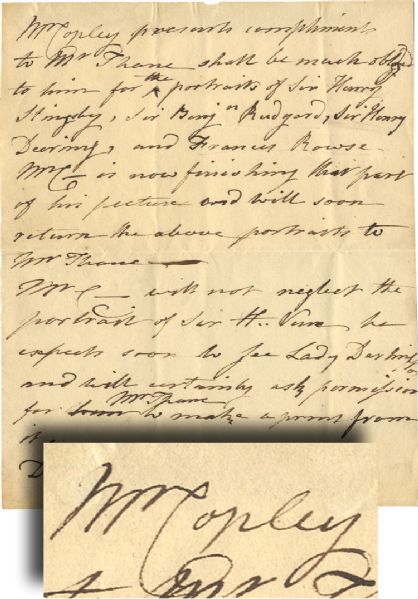 Mr Copley presents compliments
to Mr Thane shall be much obliged
to him for the portraits of Sir Harry
Slingsby, Sir Benjn Rudyard, Sir Henry
Deering, and Francis Rowse
Mr C— is now finishing that part
of his picture and will soon
return the above portraits to
Mr Thane —
Mr C— will not neglect the
portrait of Sir H.. Vane he
expects soon to see Lady Darling
and will certainly ask permission
for Mr Thane to make a print from
it
Mr Copley
to Mr T